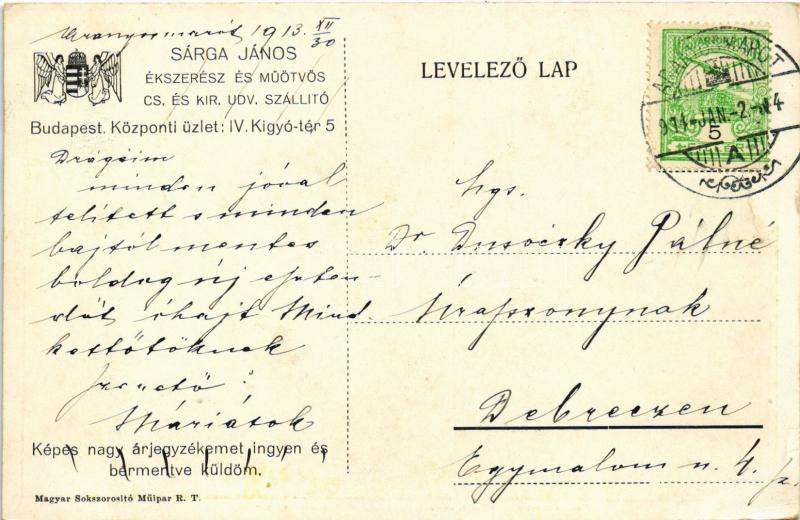 Aranyosmarót 1913 XII/30
SÁRGA JÁNOS
ÉKSZERÉSZ ÉS MŰÖTVÖS
CS. ÉS KIR. UDV. SZÁLLITÓ
Budapest. Központi üzlet: IV. Kigyó-tér 5
Drágáim
minden jóval
telített s minden
bajtól mentes
boldog új eszten-
dőt óhajt Mind-
kettőtöknek
szerető
Máriátok
Képes nagy árjegyzékemet ingyen és
bérmentve küldöm.
Magyar Sokszorositó Műipar R. T.
LEVELEZŐ LAP
914-JAN.-2.
5
A
Ngs.
Dr. Dusóczky Pálné
Úrasszonynak
Debreczen
Egymalom u. 4.